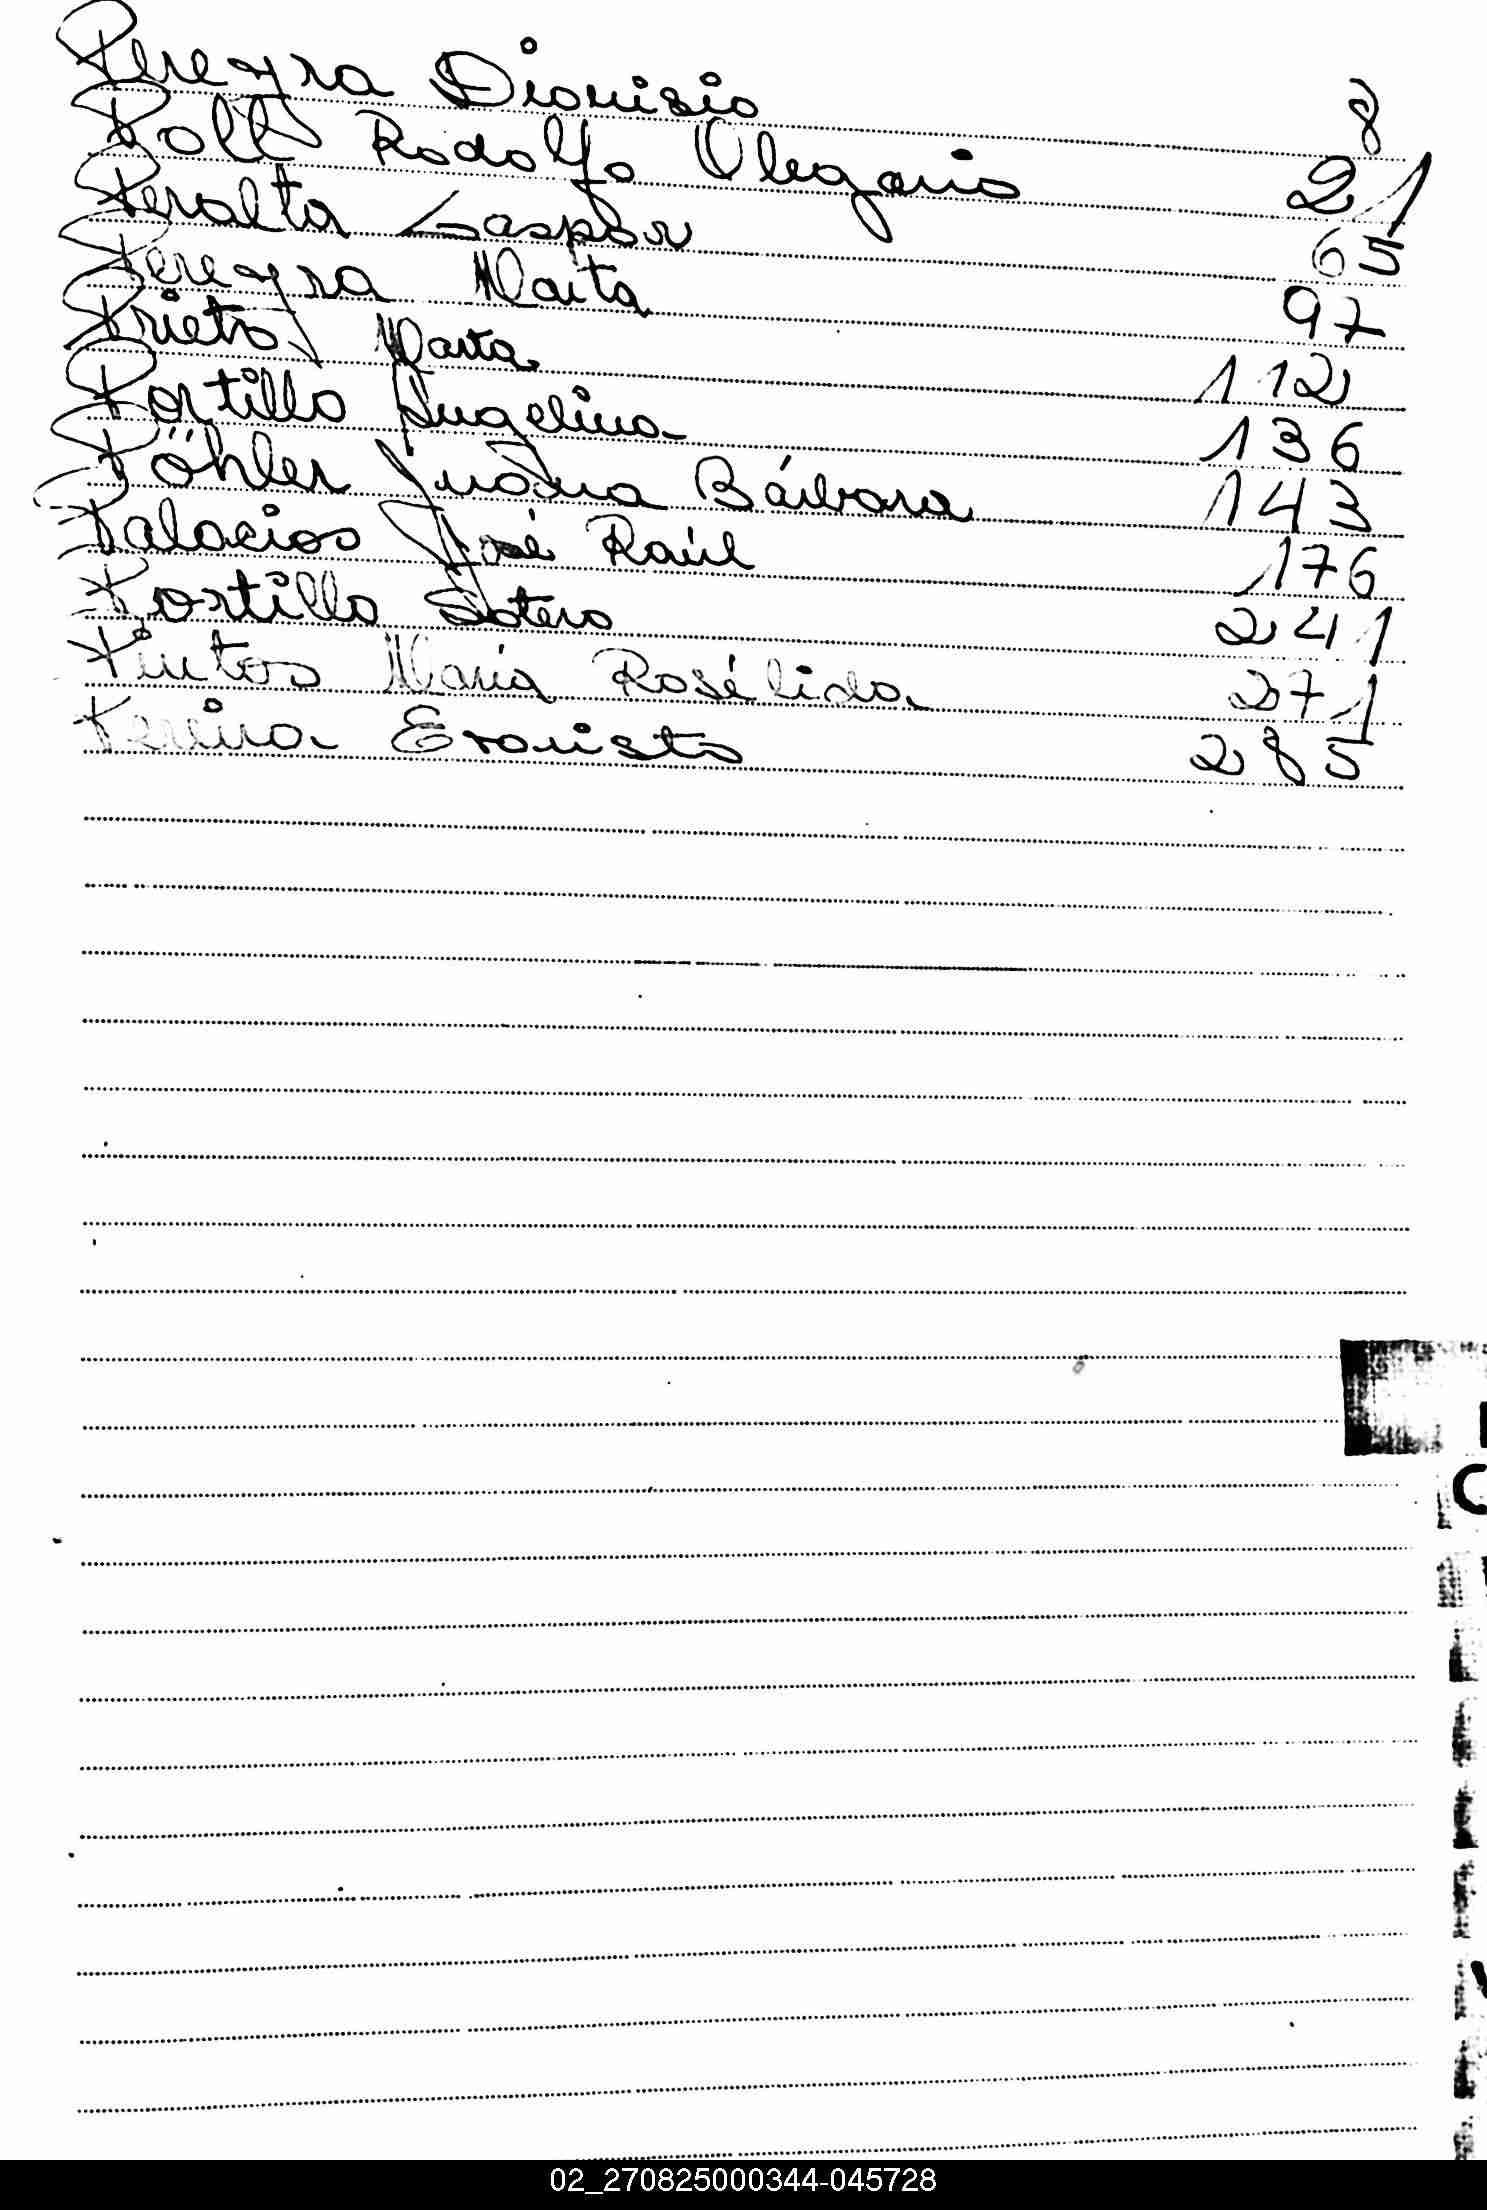 Pereyra Dionisio 8
Poll Rodolfo Olegario 21
Peralta Gaspar 65
Pereyra Marta 97
Prieto Marta 112
Portillo Angelina 136
Pöhler Juana Bárbara 143
Palacios José Raúl 176
Portillo Sotero 241
Pintos María Rosélida 271
Pereira Evaristo 285
02_270825000344-045728